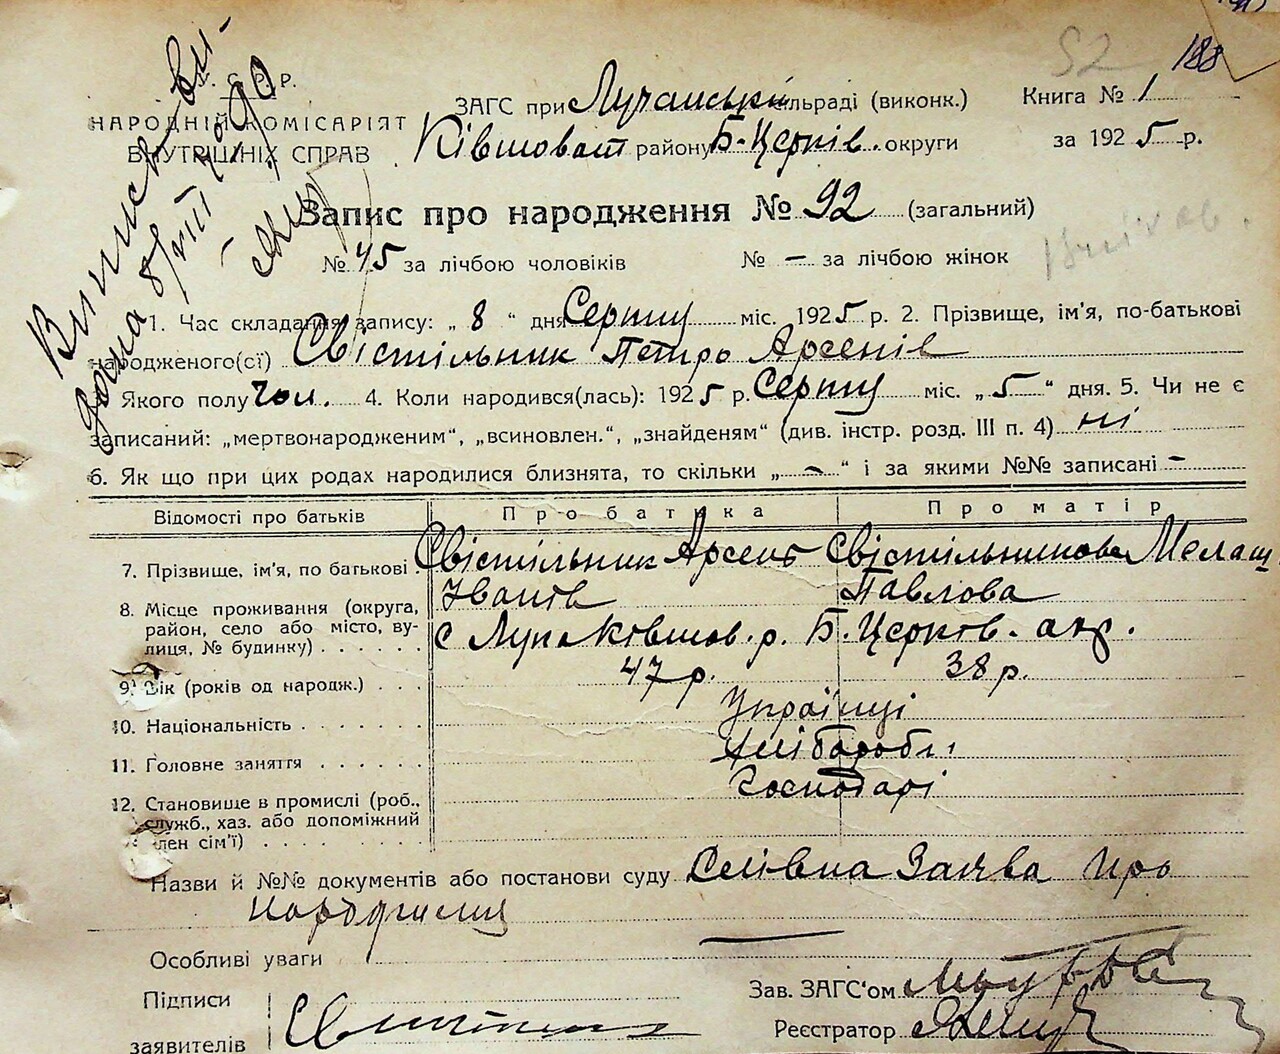 52 188
У. С. Р. Р.
НАРОДНІЙ КОМІСАРІЯТ
ВНУТРІШНІХ СПРАВ
ЗАГС при Лучанській сільраді (виконк.)
Ківшоват району Б-Церків. округи
Книга № 1
за 1925 р.
Запис про народження № 92 (загальний)
№ 45 за лічбою чоловіків № – за лічбою жінок
1. Час складання запису: „ 8 “ дня Серпня міс. 1925 р. 2. Прізвище, ім'я, по-батькові
народженого(сї) Свістільник Петро Арсенів
Якого полу чол. 4. Коли народився(лась): 1925 р. Серпня міс. „ 5 “ дня. 5. Чи не є
записаний: „мертвонародженим“, „всиновлен.“, „знайденям“ (див. інстр. розд. III п. 4) ні
6. Як що при цих родах народилися близнята, то скільки „ – “ і за якими №№ записані –
Відомості про батьків Про батька Про матір
7. Прізвище, ім'я, по батькові Свістільник Арсент Свістільникова Мелаш
Іванів Павлова
8. Місце проживання (округа,
район, село або місто, ву-
лиця, № будинку) с Лука Ківшов. р. Б. Церків. окр.
9. Вік (років од народж.) 47 р. 38 р.
10. Національність Українці
11. Головне заняття Хлібороби
12. Становище в промислі (роб.,
служб., хаз. або допоміжний
член сім'ї) Господарі
Назви й №№ документів або постанови суду Слівна Заява про
народження
Особливі уваги
Підписи
заявителів
Зав. ЗАГС'ом
Реєстратор